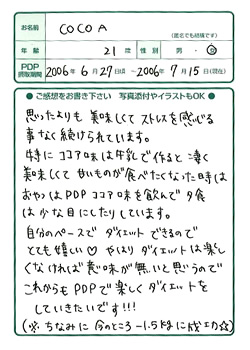 お名前 COCOA
(匿名でも結構です)
年齢 21歳 性別 男・女
PDP摂取期間 2006年6月27日頃〜2006年7月15日(現在)
●ご感想をお書き下さい 写真添付やイラストもOK●
思ったよりも美味しくてストレスを感じる
事なく続けられています。
特にココア味は牛乳で作ると凄く
美味しくて甘いものが食べたくなった時は
おやつはPDPココア味を飲んで夕食
は少な目にしたりしています。
自分のペースでダイエットできるので
とても嬉しい♡ やはりダイエットは楽し
くなければ意味が無いと思うので
これからもPDPで楽しくダイエットを
していきたいです!!!
(※ちなみに今のところ−1.5kgに成功☆)